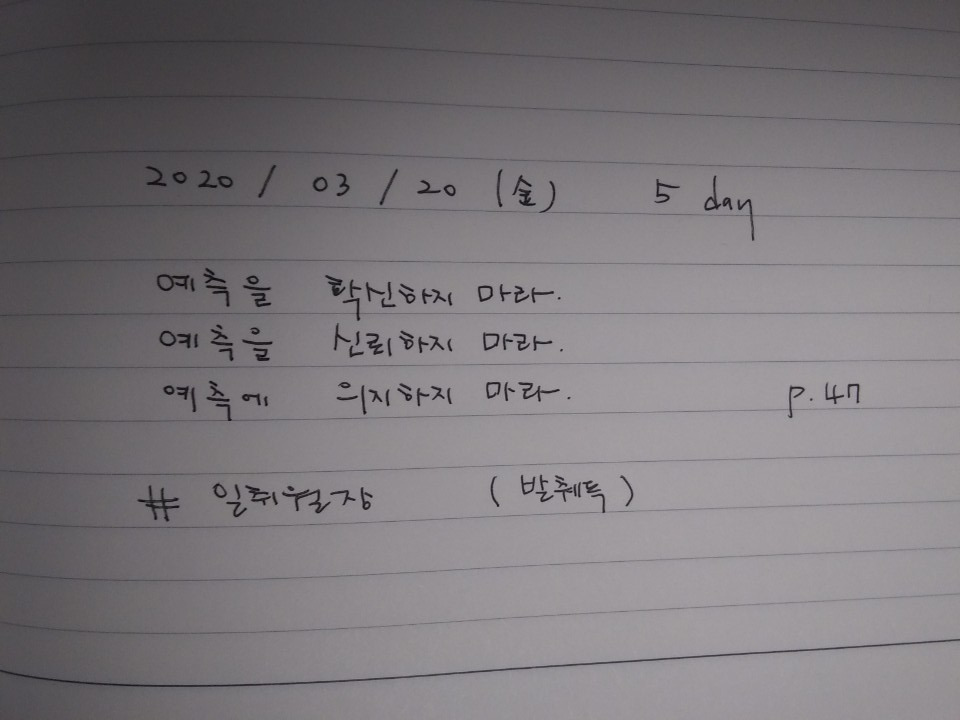 2020 / 03 / 20 (金) 5 day
예측을 확신하지 마라.
예측을 신뢰하지 마라.
예측에 의지하지 마라. p.47
# 일취월장 (발췌독)